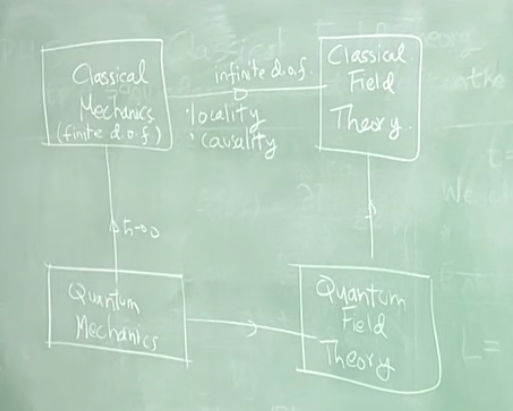 Classical
Mechanics
(finite d.o.f)
infinite d.o.f.
• locality
• causality
Classical
Field
Theory.
ħ→0
Quantum
Mechanics
Quantum
Field
Theory
We
L =